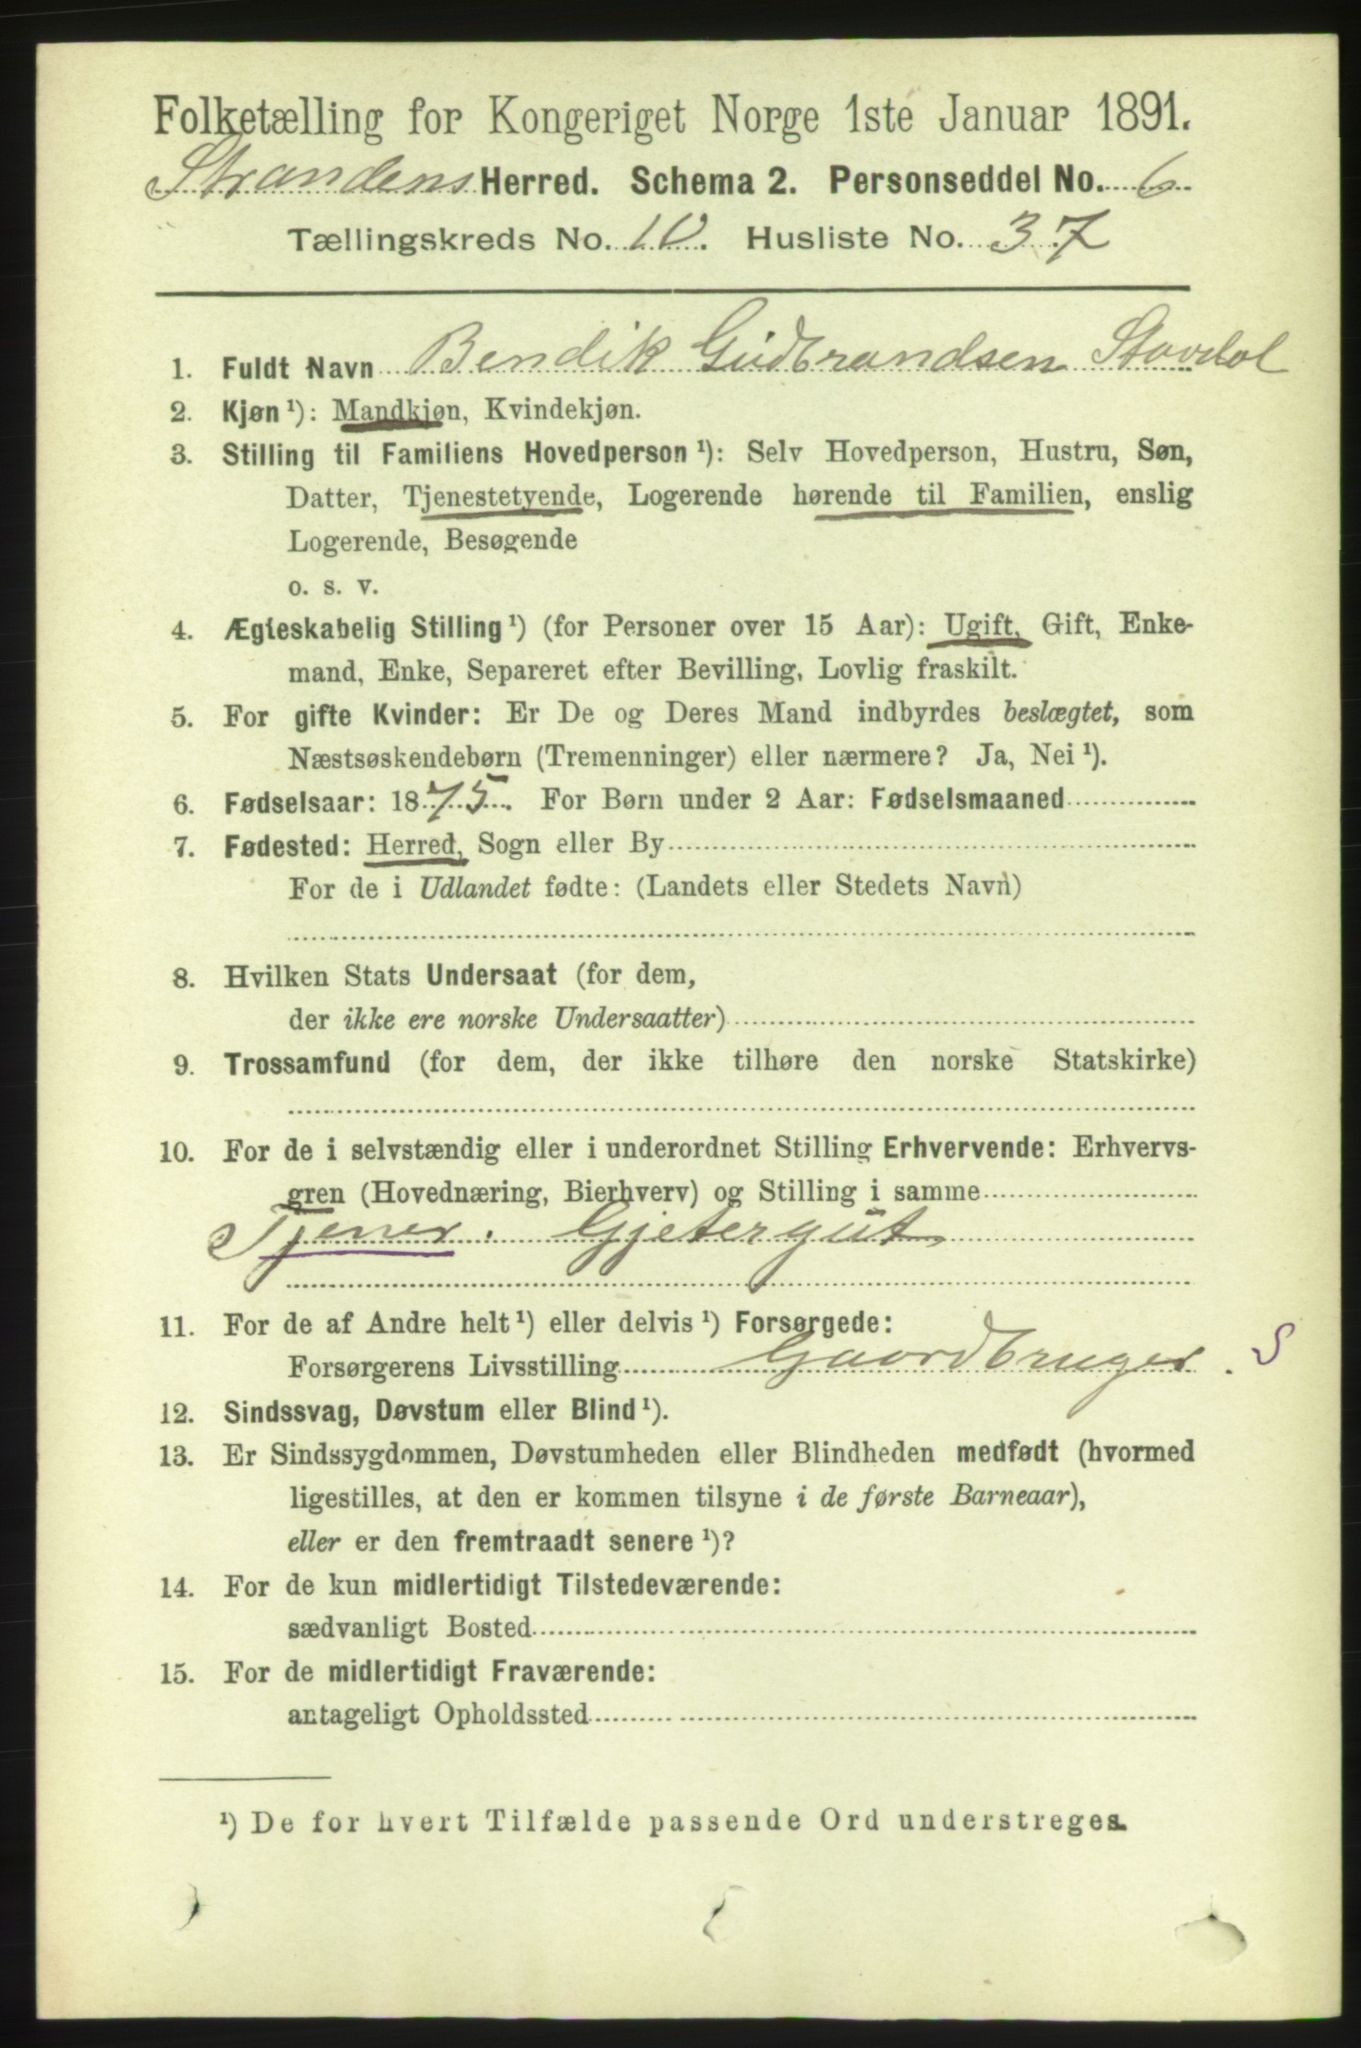 Folketælling for Kongeriget Norge 1ste Januar 1891.
Strandens Herred. Schema 2. Personseddel No. 6
Tællingskreds No. 10. Husliste No. 37
1. Fuldt Navn Bendik Gudbrandsen Stavdal
2. Kjøn ¹): Mandkjøn, Kvindekjøn.
3. Stilling til Familiens Hovedperson ¹): Selv Hovedperson, Hustru, Søn,
Datter, Tjenestetyende, Logerende hørende til Familien, enslig
Logerende, Besøgende
o. s. v.
4. Ægteskabelig Stilling ¹) (for Personer over 15 Aar): Ugift, Gift, Enke-
mand, Enke, Separeret efter Bevilling, Lovlig fraskilt.
5. For gifte Kvinder: Er De og Deres Mand indbyrdes beslægtet, som
Næstsøskendebørn (Tremenninger) eller nærmere? Ja, Nei ¹).
6. Fødselsaar: 1875. For Børn under 2 Aar: Fødselsmaaned
7. Fødested: Herred, Sogn eller By
For de i Udlandet fødte: (Landets eller Stedets Navn)
8. Hvilken Stats Undersaat (for dem,
der ikke ere norske Undersaatter)
9. Trossamfund (for dem, der ikke tilhøre den norske Statskirke)
10. For de i selvstændig eller i underordnet Stilling Erhvervende: Erhvervs-
gren (Hovednæring, Bierhverv) og Stilling i samme
Tjener. Gjetergut
11. For de af Andre helt ¹) eller delvis ¹) Forsørgede:
Forsørgerens Livsstilling Gaardbruger. S
12. Sindssvag, Døvstum eller Blind ¹).
13. Er Sindssygdommen, Døvstumheden eller Blindheden medfødt (hvormed
ligestilles, at den er kommen tilsyne i de første Barneaar),
eller er den fremtraadt senere ¹)?
14. For de kun midlertidigt Tilstedeværende:
sædvanligt Bosted
15. For de midlertidigt Fraværende:
antageligt Opholdssted
¹) De for hvert Tilfælde passende Ord understreges.